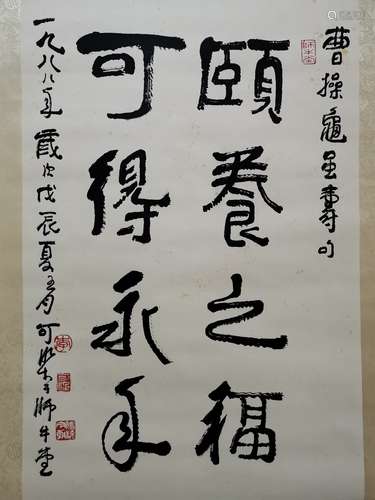 曹操龜虽壽句
頤養之福
可得永年
一九八八年歲次戊辰夏五月可染于師牛堂